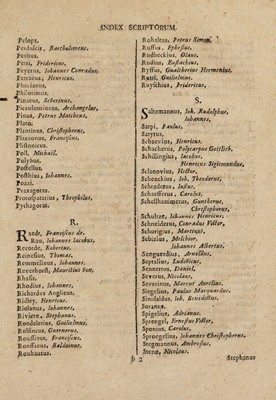 INDEX SCRIPTORUM.
Pelops.
Perdulcis, Bartholomeus.
Petitus.
Petri, Fridericus.
Peyerus, Iohannes Conradus.
Petraeus, Henricus.
Pherianus.
Philotimus.
Pinaeus, Severinus.
Piccolomineus, Archangelus.
Pinus, Petrus Mattheus.
Plato.
Plantinus, Christophorus.
Plazzonus, Franciscus.
Plistonicus.
Poll, Michaël.
Polybus.
Postellus.
Posthius, Iohannes.
Praxagoras.
Protospatarius, Theophilus.
Pythagoras.
R.
Raedt, Franciscus de.
Rau, Iohannes Iacobus.
Recorde, Robertus.
Reinesius, Thomas.
Remmelinus, Iohannes.
Reverhorst, Mauritius van,
Rhasis.
Rhodius, Iohannes.
Richardus Anglicus.
Ridley, Henricus.
Riolanus, Iohannes.
Riviere, Stephanus.
Rondeletius, Guilielmus.
Rolfincus, Guernerus.
Roussetus, Franciscus.
Rousseus, Balduinus.
Ronhausus.
Rohaltus, Petrus Simon.
Ruffus, Ephesius.
Rudbeckius, Olaus.
Rudius, Eustachius.
Ryffus, Gualtherius Hermenius.
Rutti, Guilielmus.
Ruyschius, Fridericus.
S.
Saltzmannus, Ioh. Rudolphus,
Iohannes,
Sarpi, Paulus.
Satyrus.
Schaevius, Henricus.
Schacherus, Polycarpus Gottlieb.
Schillingius, Iacobus,
Henricus Sigismundus.
Sclanovius, Hector.
Schenckius, Ioh. Theodorus,
Schraderus, Iustus.
Schaefferus, Carolus.
Schelhammerus, Guntherus,
Christophorus,
Schultze, Iohannes Henricus.
Schneiderus, Conradus Victor.
Schurigius, Martinus.
Sebizius, Melchior,
Iohannes Albertus,
Senguerdius, Arnoldus.
Septalius, Ludovicus.
Sennertus, Daniel.
Severus, Nicolaus.
Severinus, Marcus Aurelius.
Siegelius, Paulus Marquardus.
Sinibaldus, Ioh. Benedictus.
Soranus.
Spigelius, Adrianus.
Sprengel, Ernestus Victor.
Sponius, Carolus.
Sproegelius, Iohannes Christophorus.
Stegmannus, Ambrosius.
Steno, Nicolaus.
b 2
Stephanus